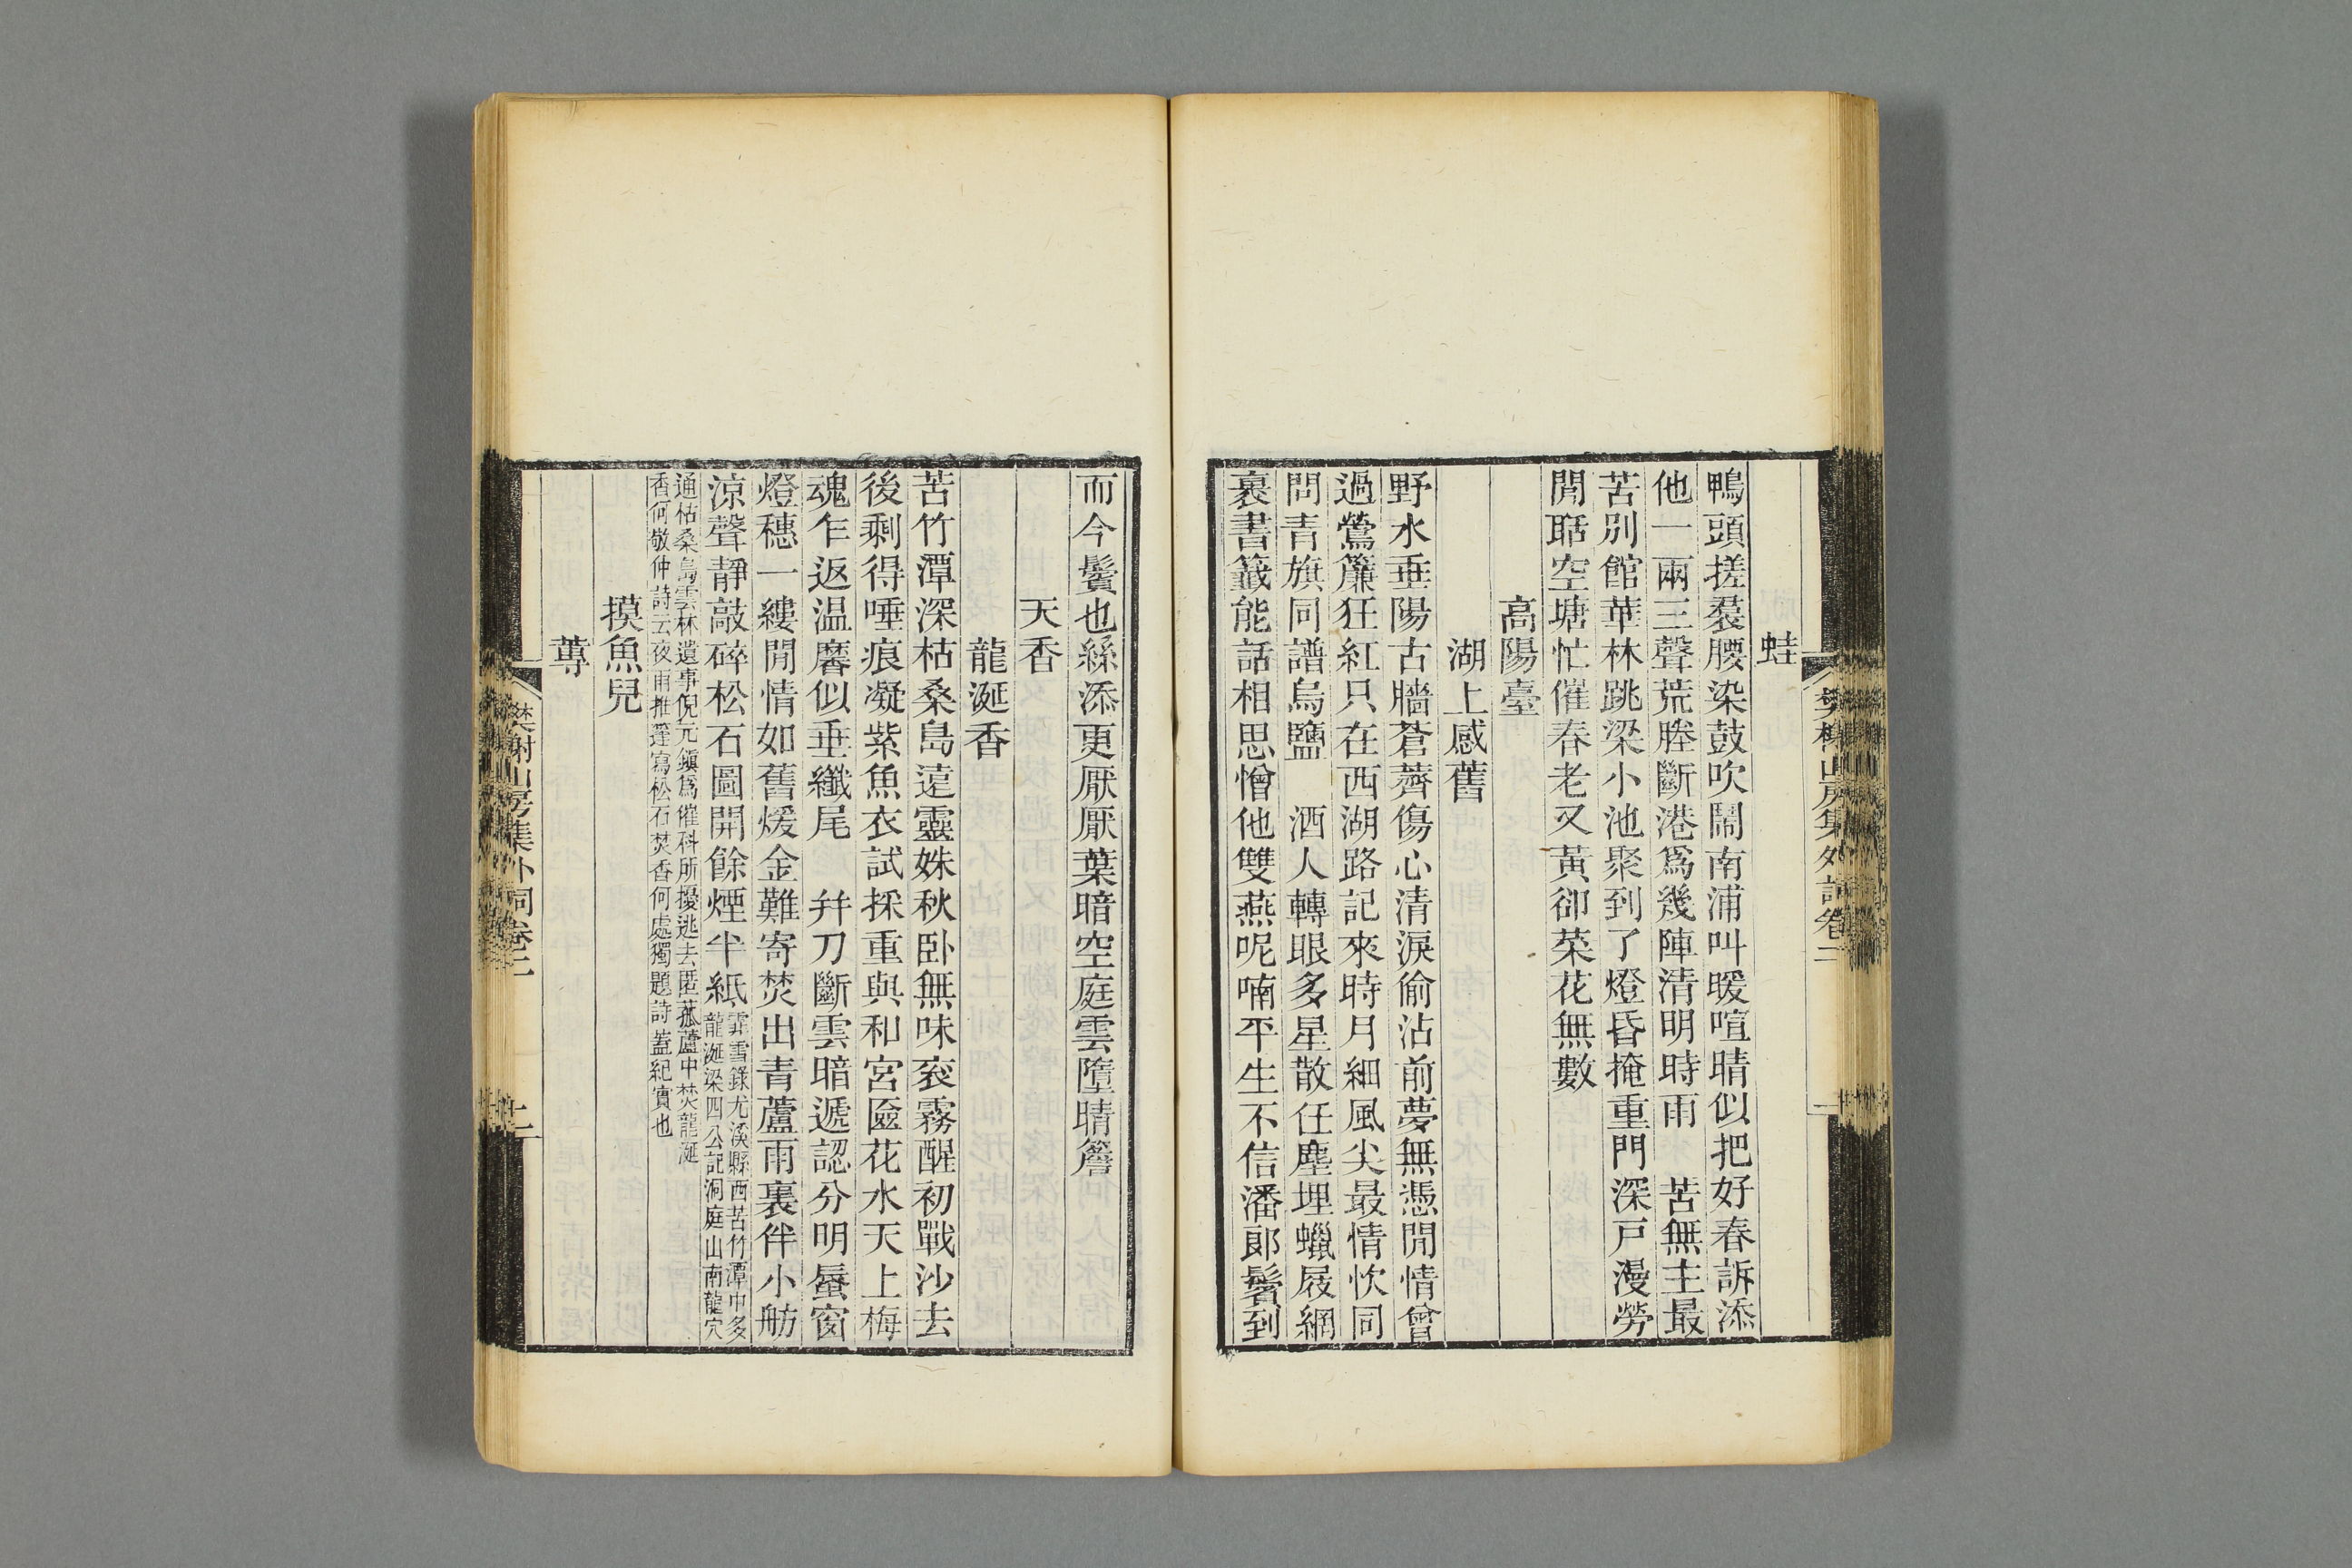 蛙
鴨頭搓裠腰染鼓吹鬧南浦叫暖喧晴似把好春訴添
他一兩三聲荒塍斷港爲幾陣清明時雨　苦無主最
苦別館華林跳梁小池聚到了燈昏掩重門深戸漫勞
閒聒空塘忙催春老又黃卻菜花無數
高陽臺
湖上感舊
野水垂陽古牆蒼薺傷心清淚偷沾前夢無憑閒情曾
過鶯簾狂紅只在西湖路記來時月細風尖最情忺同
問青旗同譜烏鹽　酒人轉眼多星散任塵埋蠟屐網
裹書籤能話相思憎他雙燕呢喃平生不信潘郞鬢到
而今鬢也絲添更厭厭葉暗空庭雲墮晴簷
天香
龍涎香
苦竹潭深枯桑島遠靈姝秋卧無味衮霧醒初戰沙去
後剩得唾痕凝紫魚衣試採重與和宮匳花水天上梅
魂乍返温黁似垂纖尾　幷刀斷雲暗遞認分明蜃窗
燈穗一縷閒情如舊煖金難寄焚出青蘆雨裏伴小舫
涼聲靜敲碎松石圖開餘煙半紙霏雪錄尤溪縣西苦竹潭中多
龍涎梁四公記洞庭山南龍穴
通枯桑島雲林遺事倪元鎭爲催科所擾逃去匿菰蘆中焚龍涎
香何敬仲詩云夜雨推篷寫松石焚香何處獨題詩蓋紀實也
摸魚兒
蓴
樊榭山房集外詞卷二